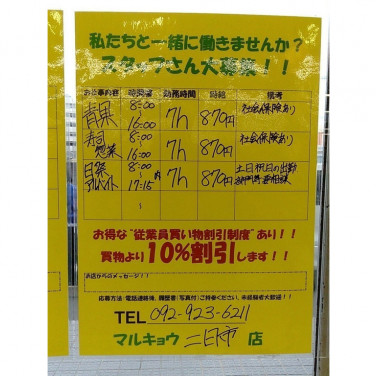 私たちと一緒に働きませんか？
スタッフさん大募集！！
お仕事内容 時間帯 勤務時間 時給 備考
青果 8:00 16:00 7h 870円 社会保険あり
寿司 惣菜 8:00 16:00 7h 870円 社会保険あり
日祭 アルバイト 8:00 17:15 内 7h 870円 土日祝日の出勤
お得な"従業員買い物割引制度"あり！！
買物より10%割引します！！
お店からのメッセージ！！
応募方法:電話連絡後、履歴書(写真付)ご持参ください。未経験者大歓迎！！
TEL 092-923-6211
マルキョウ 二日市 店